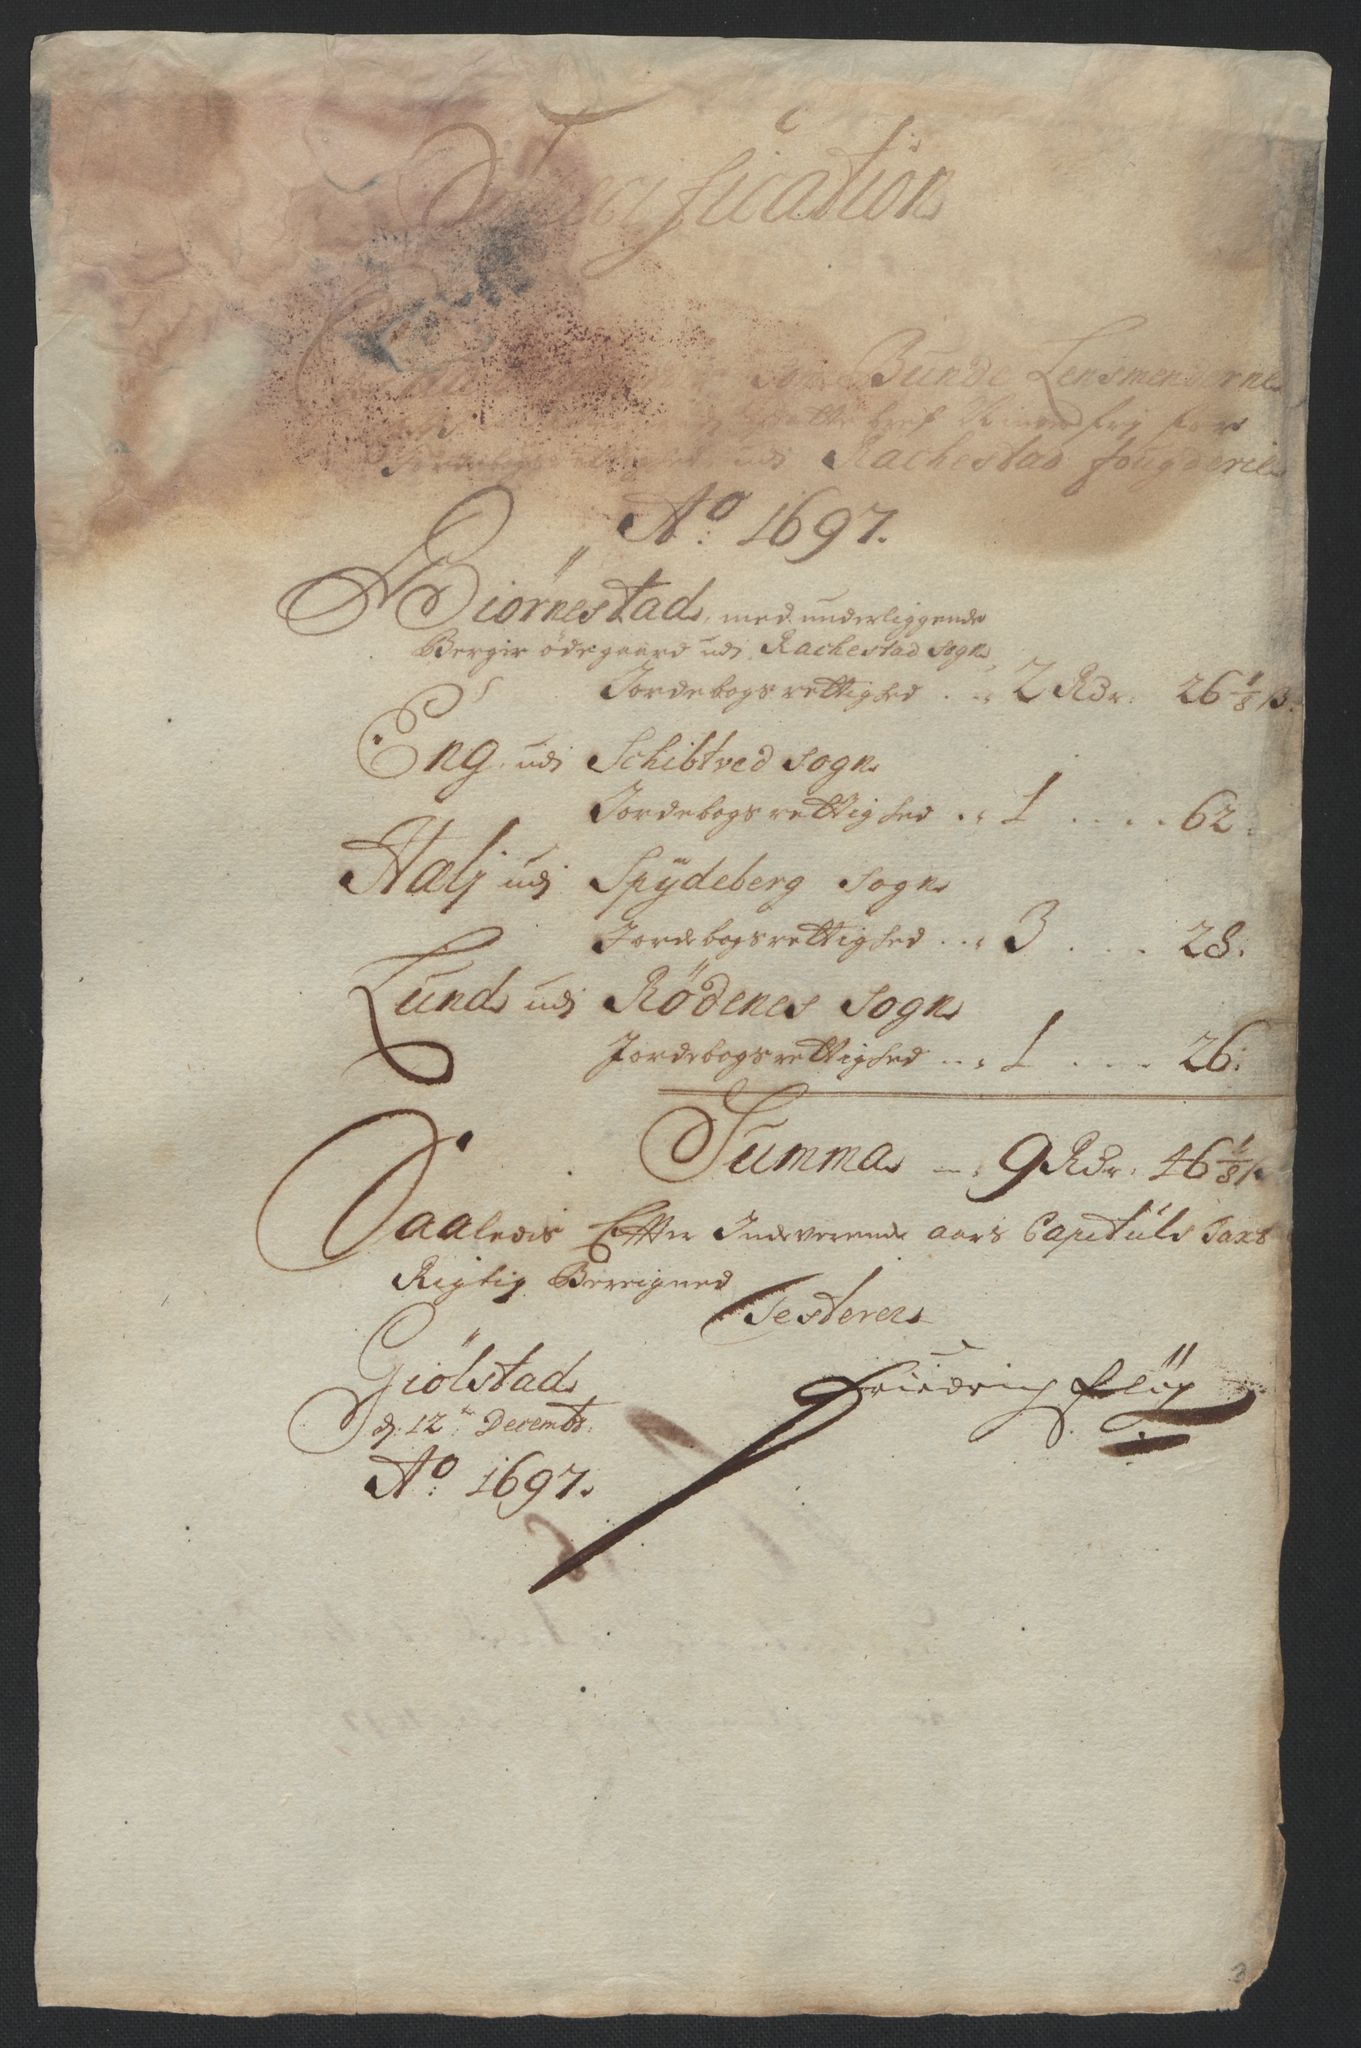 Specification
som Bunde Lensmenderne
frj for
Jordebogs udj Rachestad fougderie
Ao: 1697.
Biörnestad, med underliggende
Berger ödegaard udj Rachestad Sogn,
Jordebogsrettighed .. 2 Rdr: 26 1/8 s:
Eng udj Schibtved Sogn
Jordebogsrettighed .. 1 .... 62.
Halj udj Spÿdeberg Sogn
Jordebogsrettighed ... 3 .... 28.
Lund udj Rödenes Sogn
Jordebogsrettighed ... 1 .... 26:
Summa ... 9 Rdr: 46 1/8 s
Saaledis Effter Indeverende aars Capituls Taxt
Rigtig Bereigned
Testerer
Giölstad
dj. 12te Decembr.
Friedrich Plög
Ao: 1697.
3